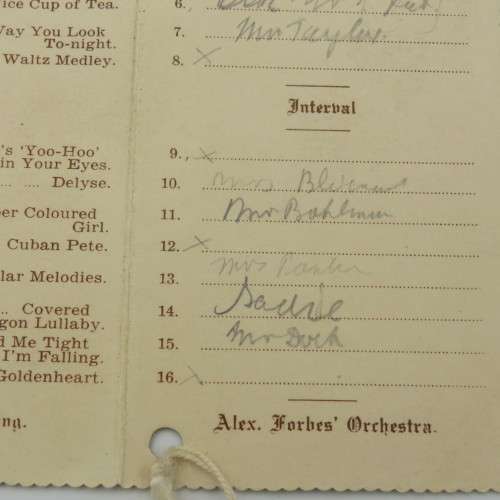 ice Cup of Tea.
6.
Way You Look
To-night.
7. Mr Taylor
Waltz Medley.
8. x
Interval
's 'Yoo-Hoo'
in Your Eyes.
9. x
... ... Delyse.
10.
er Coloured
Girl.
11. Mr Bohlman
Cuban Pete.
12. x
lar Melodies.
13. Mrs
... Covered
gon Lullaby.
14. Sadie
d Me Tight
I'm Falling.
15. Mr Dick
Goldenheart.
16. x
ng.
Alex. Forbes' Orchestra.